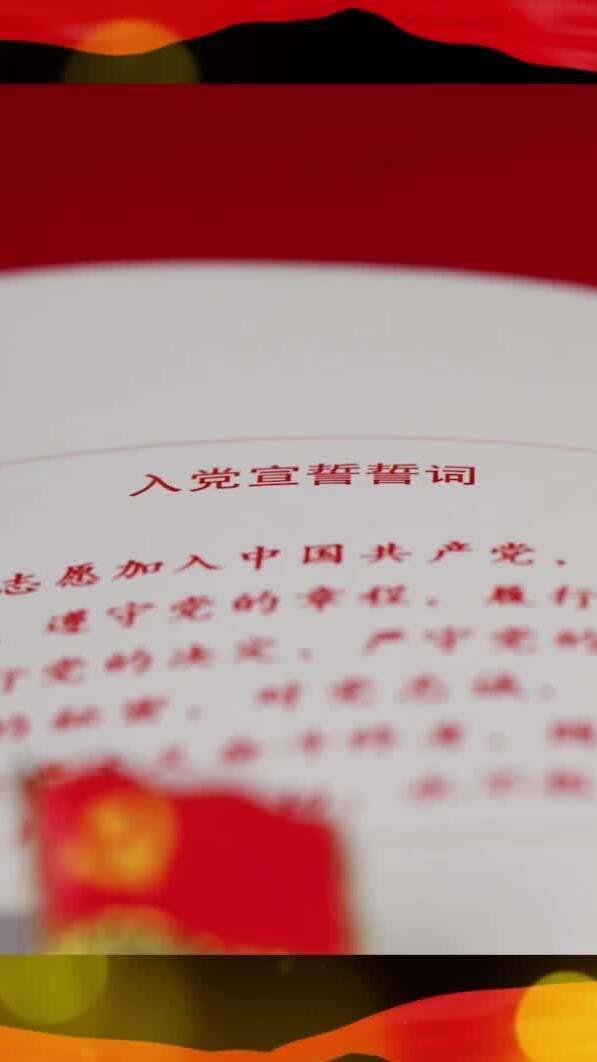 入党宣誓誓词
志愿加入中国共产党，
遵守党的章程，履行
行党的决定，严守党的
的秘密，对党忠诚，